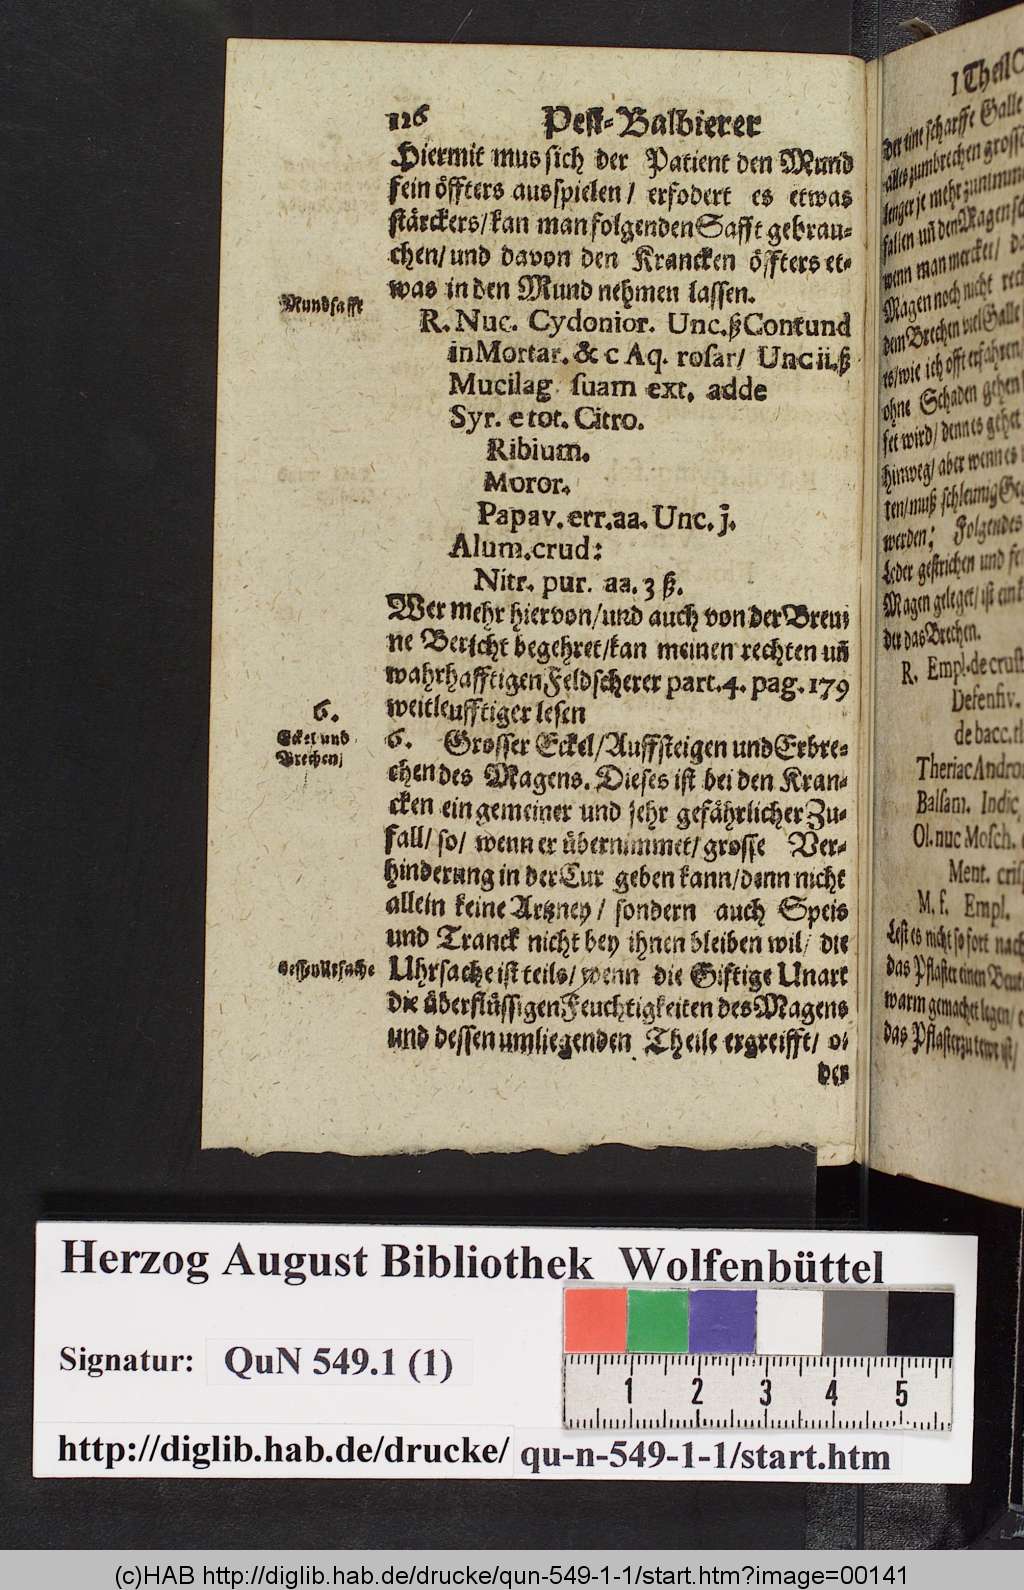 126 Pest-Balbierer
Hiermit mus sich der Patient den Mund
fein öffters ausspielen/ erfodert es etwas
stärckers/kan man folgenden Safft gebrau-
chen/und davon den Krancken öffters et-
was in den Mund nehmen lassen.
Mundsafft
R. Nuc. Cydonior. Unc.ß Contund
in Mortar. & c Aq. rosar/ Unc ii.ß
Mucilag suam ext. adde
Syr. e tot. Citro.
Ribium.
Moror.
Papav. err. aa. Unc. j.
Alum. crud:
Nitr. pur. aa. ʒ ß.
Wer mehr hiervon/und auch von der Breu;
ne Bericht begehret/kan meinen rechten uñ
wahrhafftigen Feldscherer part. 4. pag. 179
weitleufftiger lesen
6.
Eckel und
Brechen;
6. Grosser Eckel/Auffsteigen und Erbre-
chen des Magens. Dieses ist bei den Kran-
cken ein gemeiner und sehr gefährlicher Zu-
fall/ so/ wenn er übernimmet/ grosse Ver-
hinderung in der Cur geben kann/denn nicht
allein keine Artzney/ sondern auch Speis
und Tranck nicht bey ihnen bleiben wil/ die
Uhrsache ist teils/ wenn die Giftige Unart
die überflüssigen Feuchtigkeiten des Magens
und dessen umliegenden Theile ergreifft/ o;
der
I Theil
der eine scharffe Galle
alles zum brechen grosse
lenger je mehr zunimmt
fallen uñ den Magen
wenn man mercket/
Magen noch nicht
dem Brechen viel Galle
es/wie ich offt erfahren/
ohne Schaden gehen
set wird/ denn es gehet
hinweg/ aber wenn es
ten/muß schleunig
werden: Folgendes
Leder gestrichen und
Magen geleget/ ist ein
der das Brechen.
R. Empl. de crust
Defensiv.
de bacc.
Theriac Andro
Balsam. Indic
Ol. nuc Mosch.
Ment. cris
M. f. Empl.
Lest es nicht so fort nach
das Pflaster einen Beut
warm gemachet legen/
das Pflaster zu
Herzog August Bibliothek Wolfenbüttel
Signatur: QuN 549.1 (1)
1 2 3 4 5
http://diglib.hab.de/drucke/ qu-n-549-1-1/start.htm
(c)HAB http://diglib.hab.de/drucke/qun-549-1-1/start.htm?image=00141